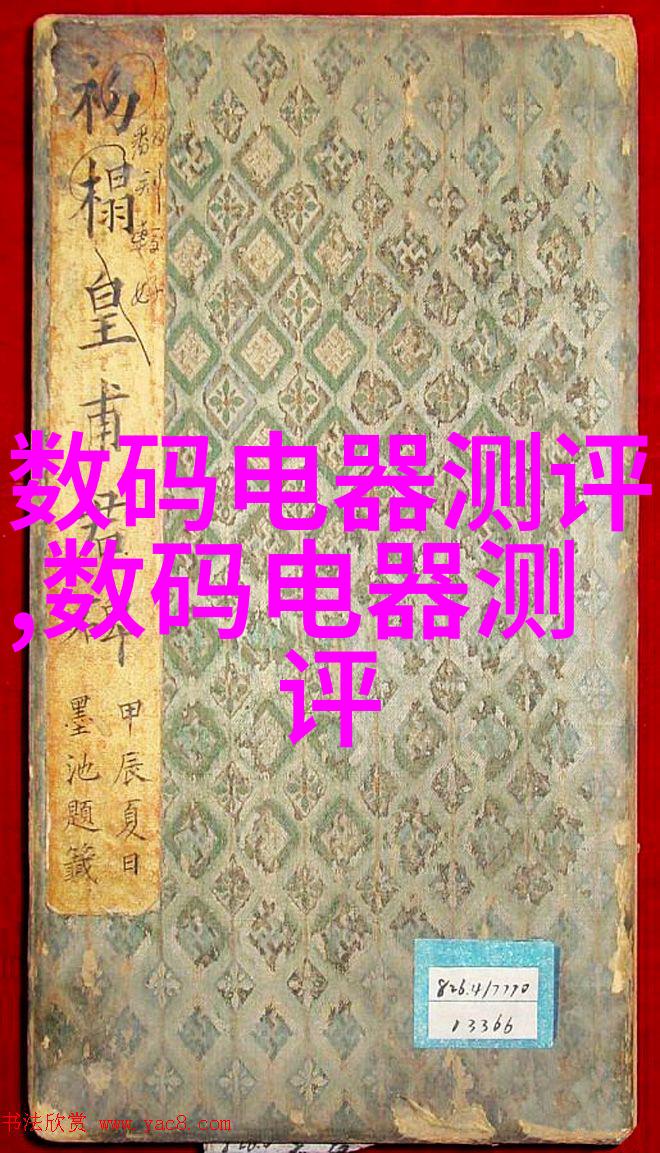 初榻皇甫君碑
甲辰夏日
墨池題籤
数码电器测评
,数码电器测
评
826.4/7770
13366
书法欣赏 www.yac8.com